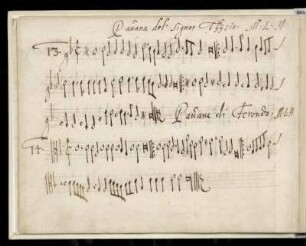 Pavana del Signor Thysio. M. L. H
13.
Pavana di Ferondo. M. L. H
14.